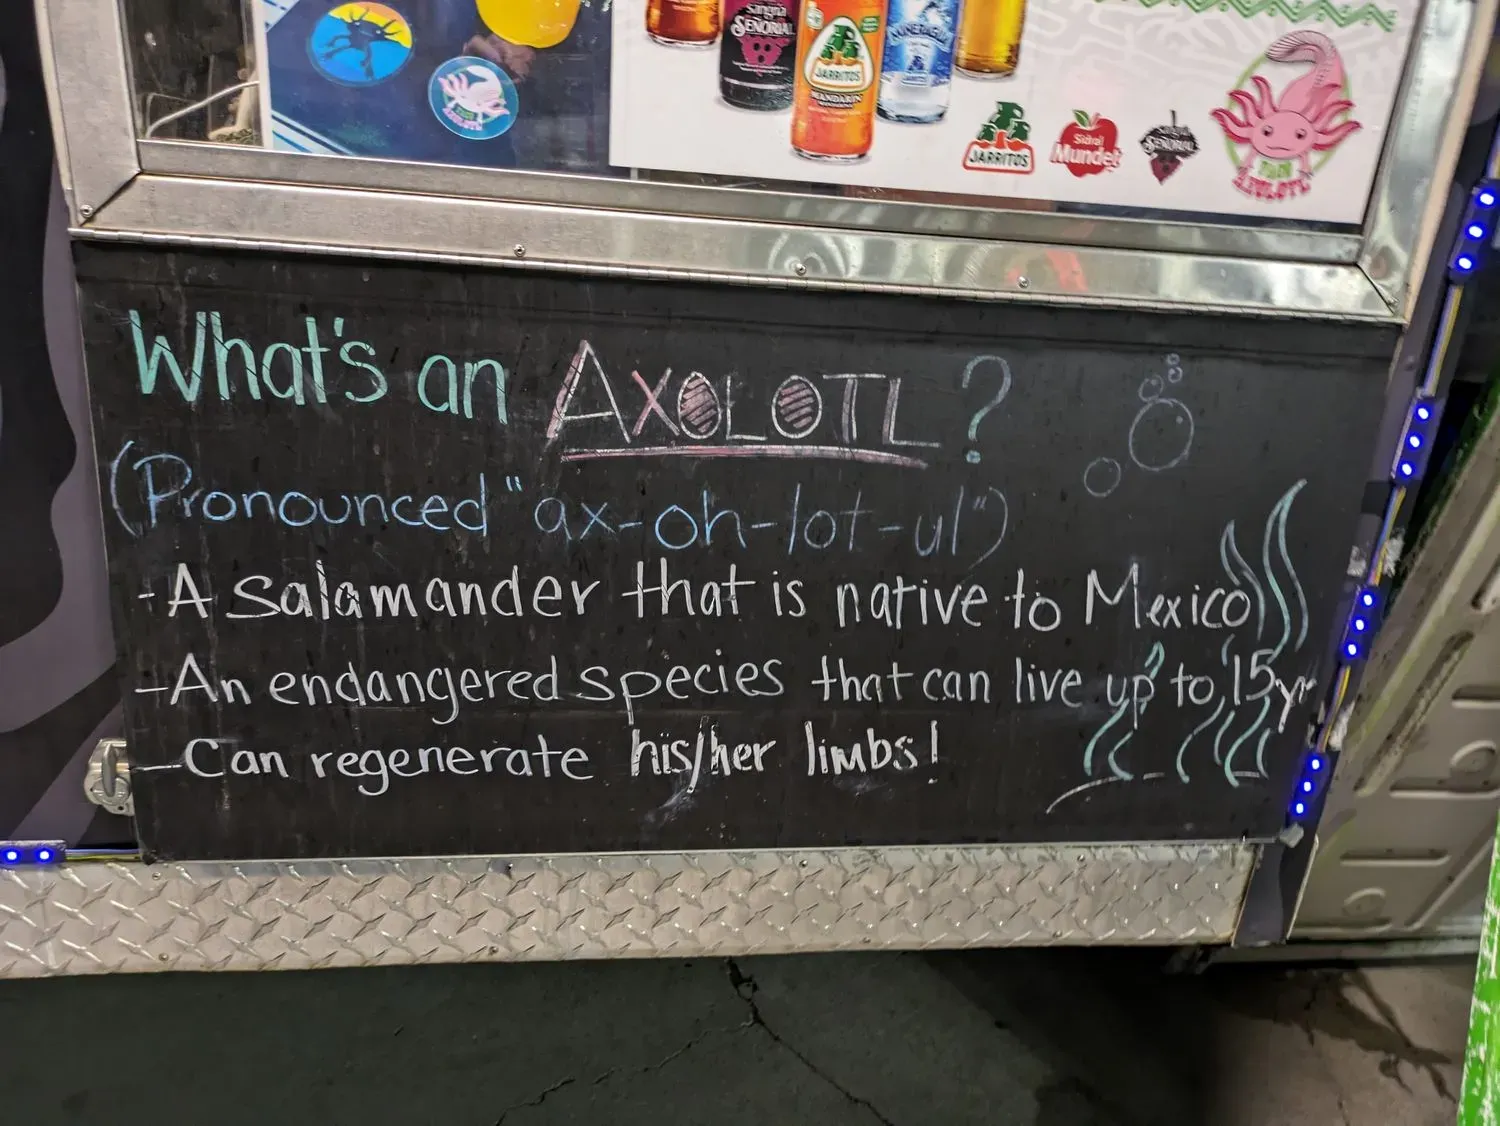 Sangria
SEÑORIAL
JARRITOS
MANDARIN
JARRITOS
Sidral
Mundet
SEÑORIAL
AXOLOTL
What's an AXOLOTL?
(Pronounced "ax-oh-lot-ul")
-A salamander that is native to Mexico
-An endangered species that can live up to 15yr
-Can regenerate his/her limbs!